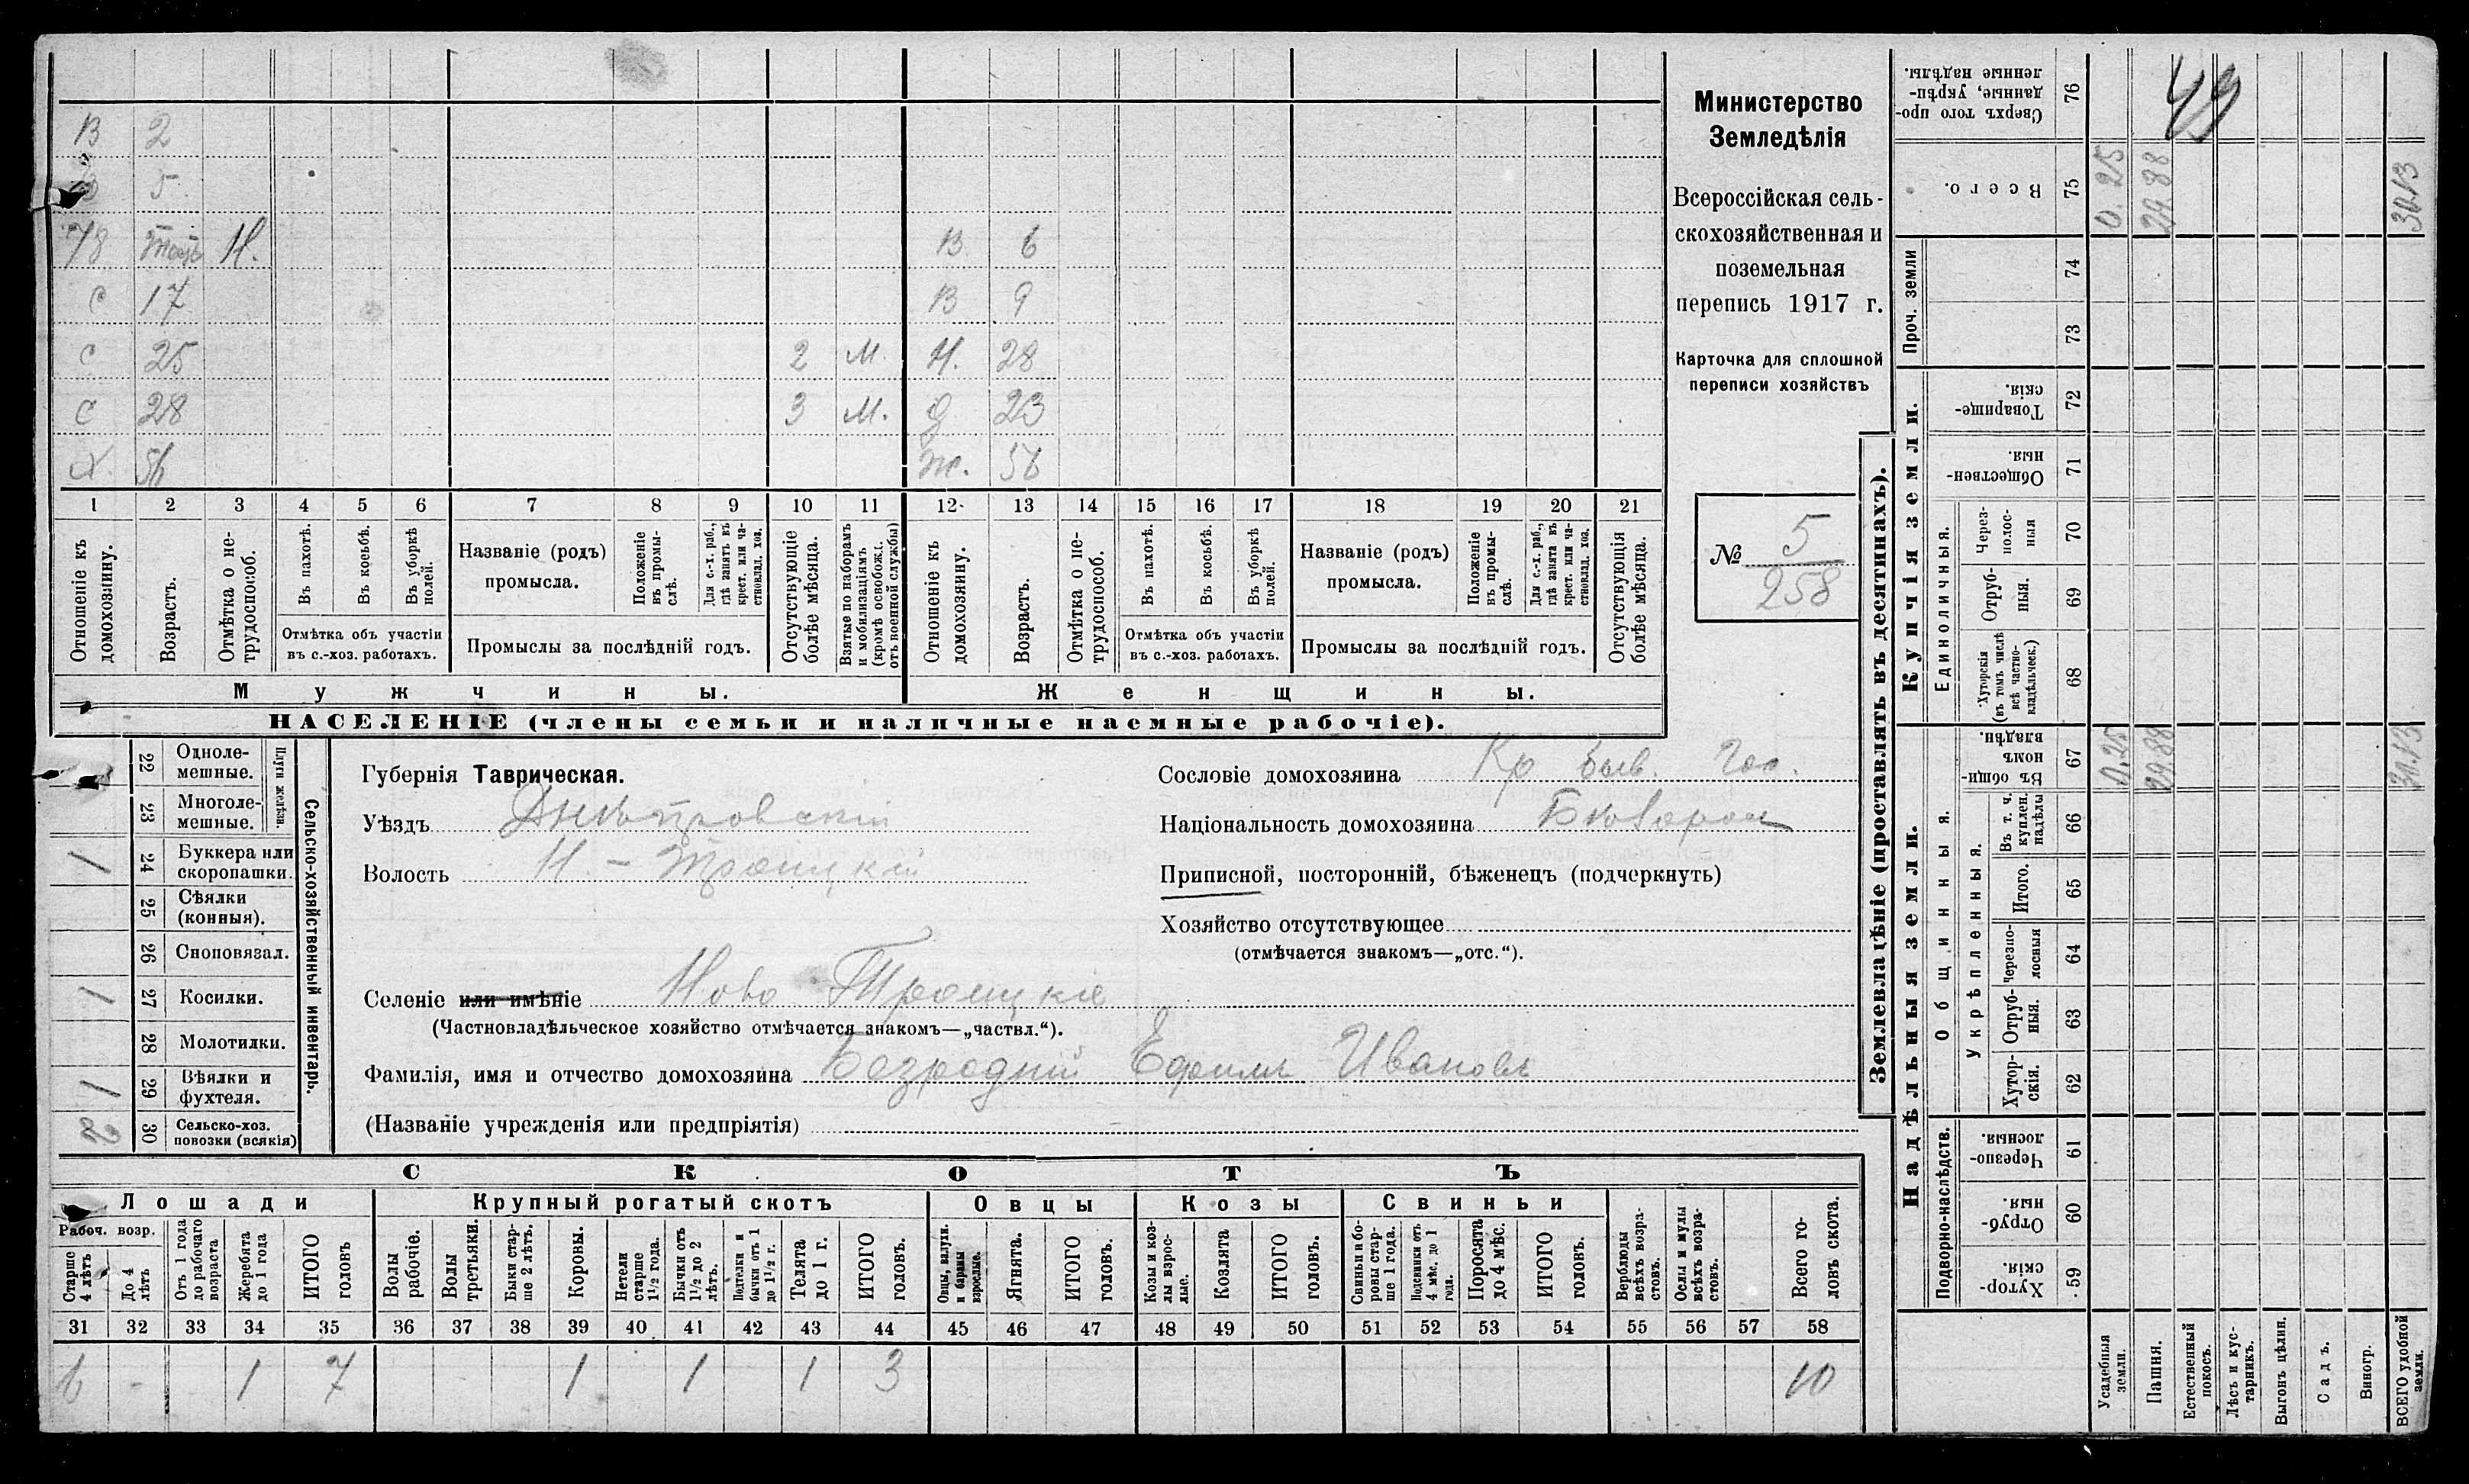 Министерство
Земледѣлія
Всероссійская сель-
скохозяйственная и
поземельная
перепись 1917 г.
Карточка для сплошной
переписи хозяйствъ
№ 5
258
В 2
5
Н. В 6
С 17 В 9
С 25 2 М. Н. 28
С 28 3 М. 23
Х. 56 Ж. 56
1 2 3 4 5 6 7 8 9 10 11 12 13 14 15 16 17 18 19 20 21
Отношеніе къ домохозяину.
Возрастъ.
Отмѣтка о не-трудоспособ.
Въ пахотѣ.
Въ косьбѣ.
Въ уборкѣ полей.
Отмѣтка объ участіи
въ с.-хоз. работахъ.
Названіе (родъ)
промысла.
Положеніе въ промы-слѣ.
Для с.-х. раб., гдѣ занятъ въ крест. или ча-стновлад. хоз.
Промыслы за послѣдній годъ.
Отсутствующіе болѣе мѣсяца.
Взятые по наборамъ и мобилизаціямъ (кромѣ освобожд. отъ военной службы)
Отношеніе къ домохозяину.
Возрастъ.
Отмѣтка о не-трудоспособ.
Въ пахотѣ.
Въ косьбѣ.
Въ уборкѣ полей.
Отмѣтка объ участіи
въ с.-хоз. работахъ.
Названіе (родъ)
промысла.
Положеніе въ промы-слѣ.
Для с.-х. раб., гдѣ занята въ крест. или ча-стновлад. хоз.
Промыслы за послѣдній годъ.
Отсутствующія болѣе мѣсяца.
Мужчины. Женщины.
НАСЕЛЕНІЕ (члены семьи и наличные наемные рабочіе).
Сельско-хозяйственный инвентарь.
Плуги желѣзн.
22 Одноле-мешные.
23 Многоле-мешные.
1 24 Буккера или скоропашки.
25 Сѣялки (конныя).
26 Сноповязал.
1 27 Косилки.
28 Молотилки.
1 29 Вѣялки и фухтеля.
2 30 Сельско-хоз. повозки (всякія)
Губернія Таврическая.
Уѣздъ Днѣпровскій
Волость Н-Троицкій
Сословіе домохозяина Кр быв. Гос.
Національность домохозяина
Приписной, посторонній, бѣженецъ (подчеркнуть)
Хозяйство отсутствующее
(отмѣчается знакомъ—„отс.“).
Селеніе или имѣніе Ново Троицкіе
(Частновладѣльческое хозяйство отмѣчается знакомъ—„частвл.“).
Фамилія, имя и отчество домохозяина Безродній Ефимъ Ивановъ
(Названіе учрежденія или предпріятія)
СКОТЪ
Лошади Крупный рогатый скотъ Овцы Козы Свиньи
Рабоч. возр.
Старше 4 лѣтъ
До 4 лѣтъ
Отъ 1 года до рабочаго возраста
Жеребята до 1 года
ИТОГО головъ
Волы рабочіе.
Волы третьяки.
Быки стар-ше 2 лѣтъ.
Коровы.
Нетели старше 1½ года.
Бычки отъ 1½ до 2 лѣтъ.
Подтелки и бычки отъ 1 до 1½ г.
Телята до 1 г.
ИТОГО головъ.
Овцы, валухи и бараны взрослые.
Ягнята.
ИТОГО головъ.
Козы и коз-лы взрос-лые.
Козлята
ИТОГО головъ.
Свиньи и бо-ровы стар-ше 1 года.
Подсвинки отъ 4 мѣс. до 1 года.
Поросята до 4 мѣс.
ИТОГО головъ.
Верблюды всѣхъ возра-стовъ.
Ослы и мулы всѣхъ возра-стовъ.
Всего го-ловъ скота.
31 32 33 34 35 36 37 38 39 40 41 42 43 44 45 46 47 48 49 50 51 52 53 54 55 56 57 58
6 - 1 7 1 1 1 3 10
Землевладѣніе (проставлять въ десятинахъ).
49
Сверхъ того про-данные, укрѣп-ленные надѣлы. 76
Всего. 75 0.25 29.88 30.13
Проч. земли 74
73
Купчія земли.
Товарище-скія. 72
Обществен-ныя. 71
Единоличныя.
Через-полос-ныя 70
Отруб-ныя. 69
Хуторскія (въ томъ числѣ всѣ частно-владѣльческ.) 68
Надѣльныя земли.
Общинныя.
Въ общи-номъ владѣн. 67 0.25 29.88 30.13
Укрѣпленныя.
Въ т. ч. куплен. надѣлы 66
Итого. 65
Черезпо-лосныя 64
Отруб-ныя. 63
Хутор-скія. 62
Подворно-наслѣдств.
Черезпо-лосныя. 61
Отруб-ныя. 60
Хутор-скія. 59
Усадебныя земли.
Пашня.
Естественный покосъ.
Лѣсъ и кус-тарникъ.
Выгонъ цѣлин.
Садъ.
Виногр.
ВСЕГО удобной земли.